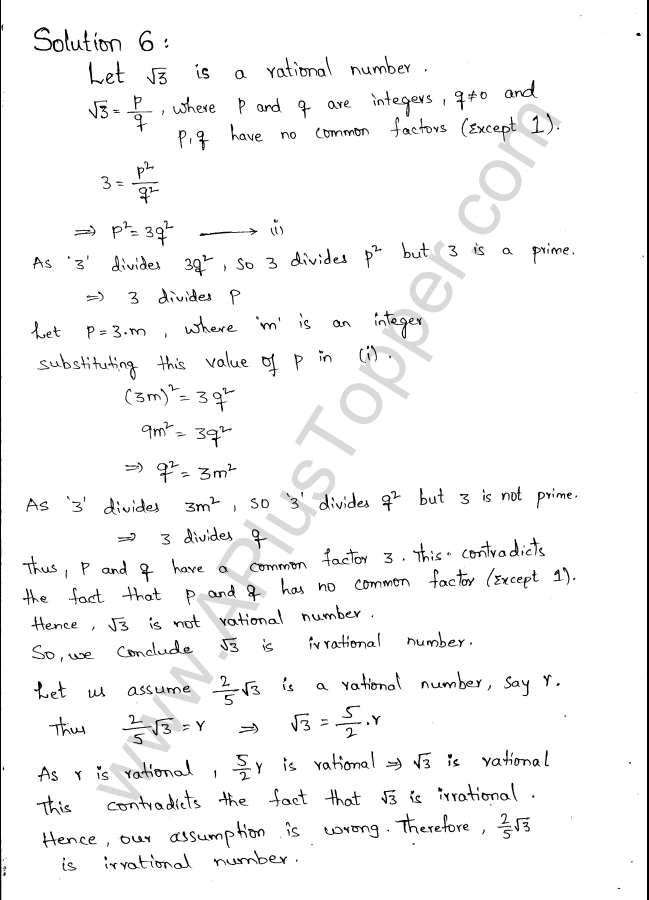 Solution 6 :
Let √3 is a rational number.
√3 = p/q , where p and q are integers, q≠0 and
p,q have no common factors (Except 1).
3 = p²/q²
⇒ p² = 3q² ⟶ (i)
As '3' divides 3q², so 3 divides p² but 3 is a prime.
⇒ 3 divides p
Let p = 3.m , where 'm' is an integer
substituting this value of p in (i).
(3m)² = 3q²
9m² = 3q²
⇒ q² = 3m²
As '3' divides 3m², so '3' divides q² but 3 is not prime.
⇒ 3 divides q
Thus, p and q have a common factor 3. This contradicts
the fact that p and q has no common factor (Except 1).
Hence, √3 is not rational number.
So, we conclude √3 is irrational number.
Let us assume 2/5 √3 is a rational number, say r.
Thus 2/5 √3 = r ⇒ √3 = 5/2 .r
As r is rational, 5/2 r is rational ⇒ √3 is rational
This contradicts the fact that √3 is irrational.
Hence, our assumption is wrong. Therefore, 2/5 √3
is irrational number.
www.APlusTopper.com